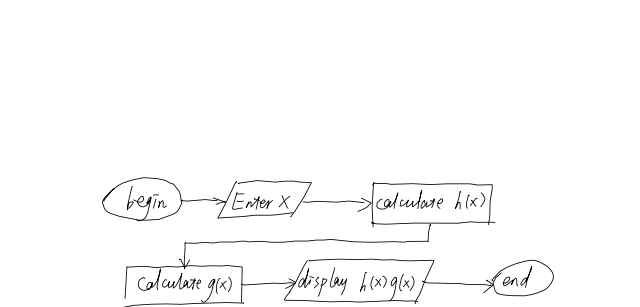 begin
Enter X
calculate h(x)
calculate g(x)
display h(x) g(x)
end